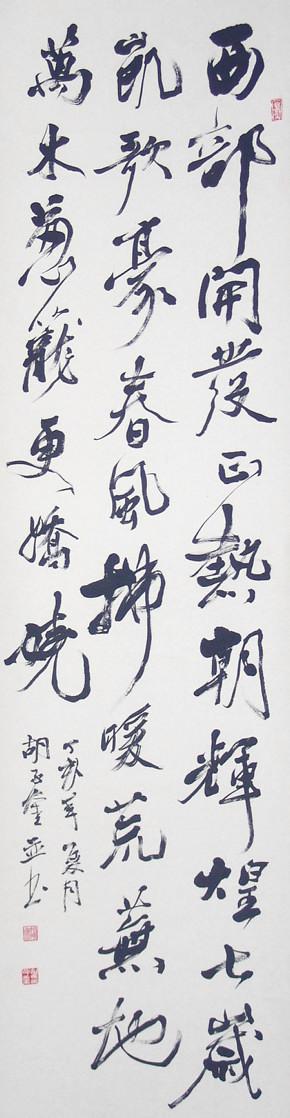 西部開發正熱朝輝煌七歲
凱歌豪春風拂暖荒蕪地
萬水蔥蘢更嬌嬈
丁亥年夏月
胡正金並书